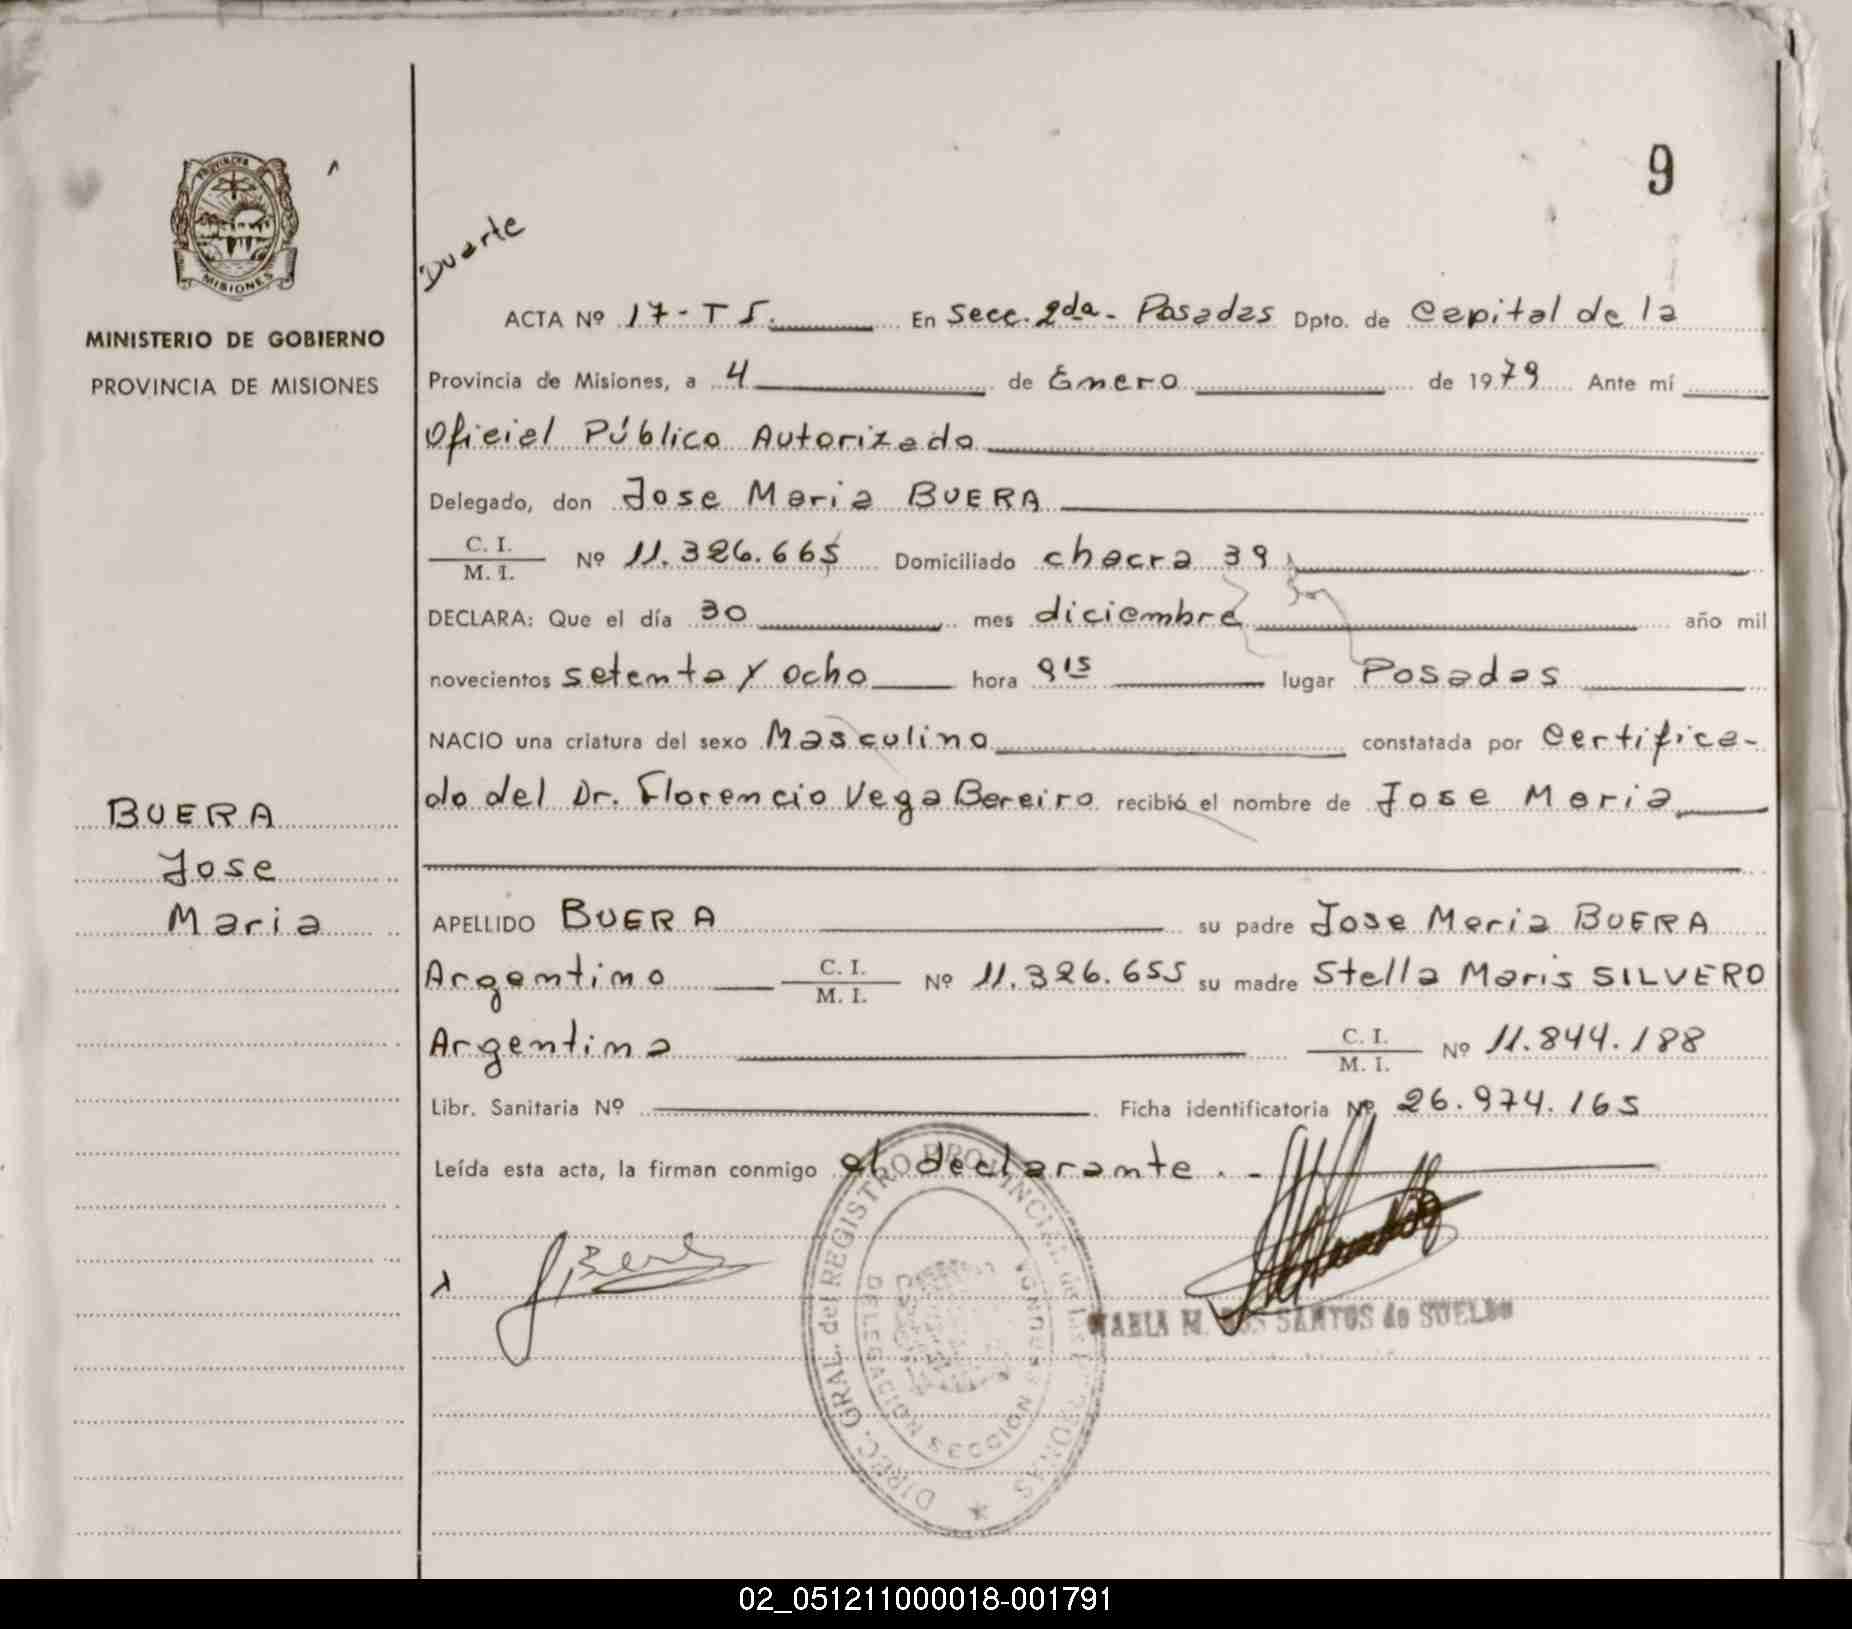 9
PROVINCIA
MISIONES
MINISTERIO DE GOBIERNO
PROVINCIA DE MISIONES
Duarte
ACTA Nº 17-T5. En Secc. 2da.- Posadas Dpto. de Capital de la
Provincia de Misiones, a 4 de Enero de 1979 Ante mí
Oficial Público Autorizado
Delegado, don Jose Maria BUERA
C. I.
M. I. Nº 11.326.665 Domiciliado chacra 39
DECLARA: Que el día 30 mes diciembre año mil
novecientos setenta y ocho hora 9 15 lugar Posadas
NACIO una criatura del sexo Masculino constatada por Certifica-
do del Dr. Florencio Vega Bereiro recibió el nombre de Jose Maria
BUERA
Jose
Maria
APELLIDO BUERA su padre Jose Maria BUERA
Argentino C. I.
M. I. Nº 11.326.655 su madre Stella Maris SILVERO
Argentina C. I.
M. I. Nº 11.844.188
Libr. Sanitaria Nº Ficha identificatoria Nº 26.974.165
Leída esta acta, la firman conmigo el declarante.-
DIREC. GRAL. del REGISTRO PROVINCIAL de LAS PERSONAS
DELEGACION SECCION SEGUNDA
MARIA M. DOS SANTOS de SUELDO
02_051211000018-001791